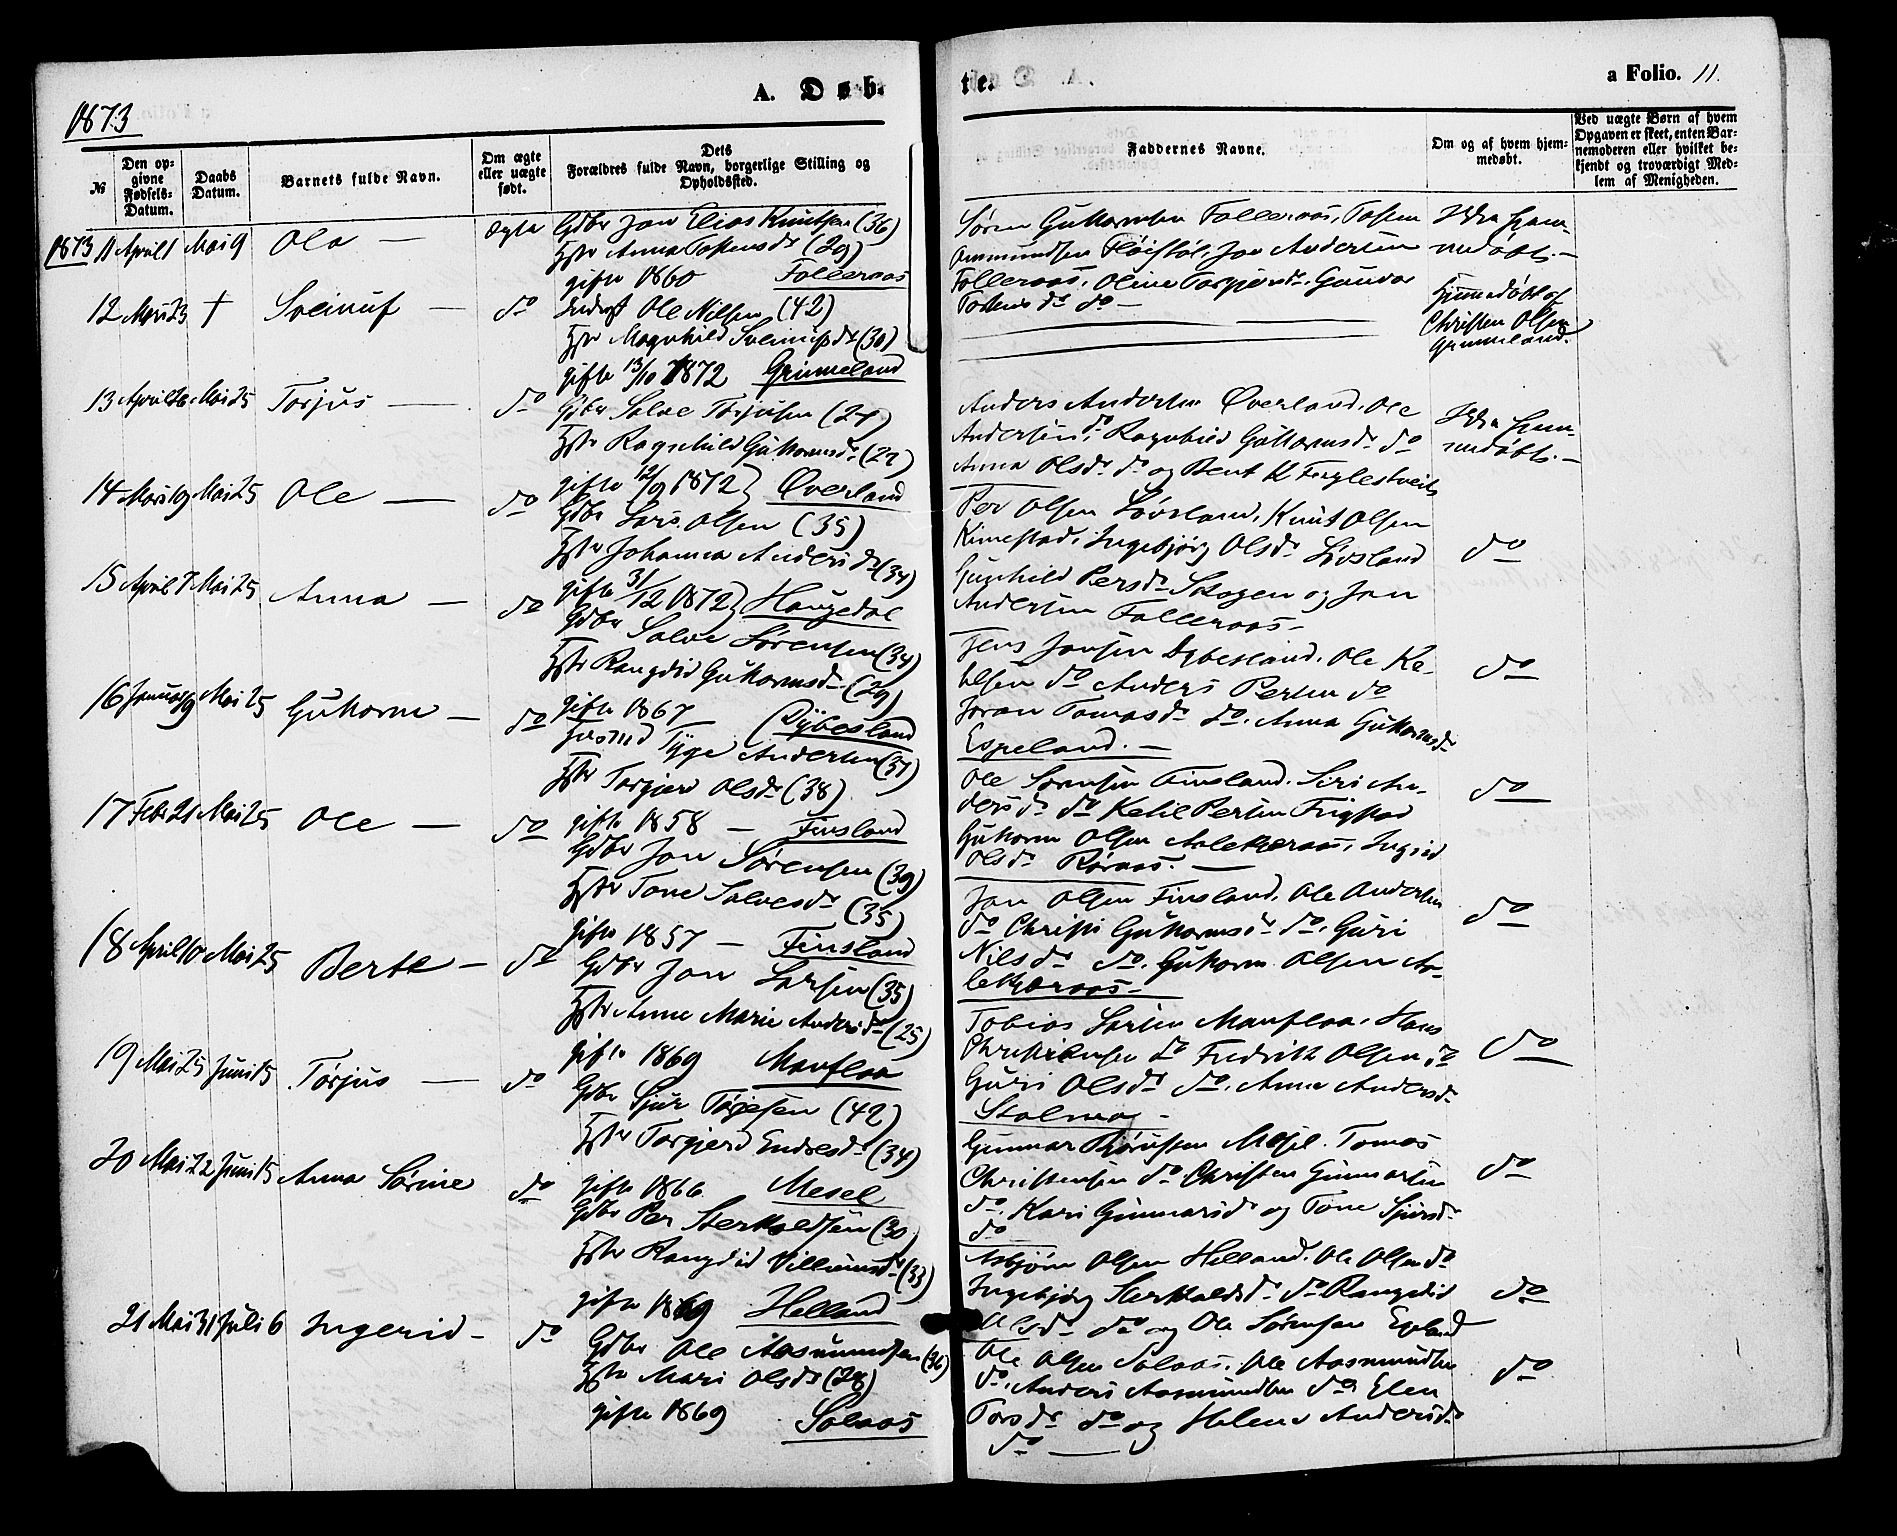 1873
A. Døb-
te.
a Folio. 11.
№
Den op-
givne
Fødsels-
Datum.
Daabs
Datum.
Barnets fulde Navn.
Om ægte
eller uægte
født.
Dets
Forældres fulde Navn, borgerlige Stilling og
Opholdssted.
Faddernes Navne.
Om og af hvem hjem-
medøbt.
Ved uægte Børn af hvem
Opgaven er skeet, enten Bar-
nemoderen eller hvilket be-
kjendt og troværdigt Med-
lem af Menigheden.
1873 11 April 1 Mai 9 Ola — ægte Gdbr Jon Elias Knutsen (36)
Hstr Anna Tostensdr (29)
gifte 1860 Folleraas
Søren Guttormsen Folleraas, Tosten
Ommundsen Fløistøl, Jon Andersen
Folleraas, Oline Torgjersdr, Gunvor
Tostensdr do —
Ikke hjem-
medøbt. —
12 Marts 23 † Sveinuf — do Indrst Ole Nilsen (42)
Hstr Magnhild Sveinufsdr (30)
gifte 13/10 1872 Grimeland
Hjemmedøbt af
Christen Olsen
Grimeland.
13 April 26 Mai 25 Torjus — do Gdbr Salve Torjusen (27)
Hstr Ragnhild Guttormsdr (27)
gifte 12/9 1872 } Øverland
Anders Andersen Øverland, Ole
Andersen do, Ragnhild Guttormsdr do
Anna Olsdr do og Bent K
Ikke hjem-
medøbt. —
14 Marts 19 Mai 25 Ole — do Gdbr Lars Olsen (35)
Hstr Johanna Andersdr (34)
gifte 31/12 1872 } Haugedal
Per Olsen Løvsland, Knut Olsen
Kimestad, Ingebjørg Olsdr Løvsland
Gunhild Persdr Skogen og Jon
Andersen Folleraas —
do
15 April 7 Mai 25 Anna — do Gdbr Salve Sørensen (34)
Hstr Rangdid Guttormsdr (29)
gifte 1867 — Dybesland
Jens Jonsen Dybesland, Ole Ke-
tilsen do Anders Persen do
Joran Tomasdr do, Anna Guttormsdr
Espeland. —
do
16 Januar 19 Mai 25 Guttorm — do Husmd Tyge Andersen (37)
Hstr Torgjerd Olsdr (38)
gifte 1858 — Finsland
Ole Sørensen Finsland, Siri An-
dersdr do Ketil Persen Frigstad
Guttorm Olsen, Ingrid
Olsdr Røraas. —
do
17 Febr 21 Mai 25 Ole — do Gdbr Jon Sørensen (39)
Hstr Tone Salvesdr (35)
gifte 1857 — Finsland
Jon Olsen Finsland, Ole Andersen
do Christi Guttormsdr do, Guri
Nilsdr do, Guttorm Olsen
do
18 April 10 Mai 25 Berte — do Gdbr Jon Larsen (35)
Hstr Anne Marie Andersdr (25)
gifte 1869 Manflaa
Tobias Larsen Manflaa, Hans
Christensen do Fredrik Olsen do
Guri Olsdr do, Anna Andersdr
Stalmag —
do
19 Mai 25 Juni 15 Torjus — do Gdbr Sjur Torjesen (42)
Hstr Torgjerd Endresdr (34)
gifte 1866 Mesel
Gunnar Mesel, Tomas
Christensen do Christen Gunnarsen
do, Kari Gunnarsdr og Tone Sjursdr
do —
do
20 Mai 22 Juni 15 Anna Sørine do Gdbr Per Sterkoldsen (30)
Hstr Rangdid Villumsdr (33)
gifte 1869 Helland
Asbjørn Olsen Helland, Ole Olsen do
Ingebjørg Sterkoldsdr do Rangdid
Olsdr do og Ole Sørensen
do
21 Mai 31 Juli 6 Ingerid — do Gdbr Ole Aasmundsen (36)
Hstr Mari Olsdr (28)
gifte 1869 Solaas
Ole Olsen Solaas, Ole Aasmundsen
do, Anders Aasmundsen do, Elen
Torsdr do og Helene Andersdr
do —
do